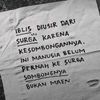 IBLIS DIUSIR DARI
SURGA KARENA
KESOMBONGANNYA.
INI MANUSIA BELUM
PERNAH KE SURGA
SOMBONGNYA
BUKAN MAEN